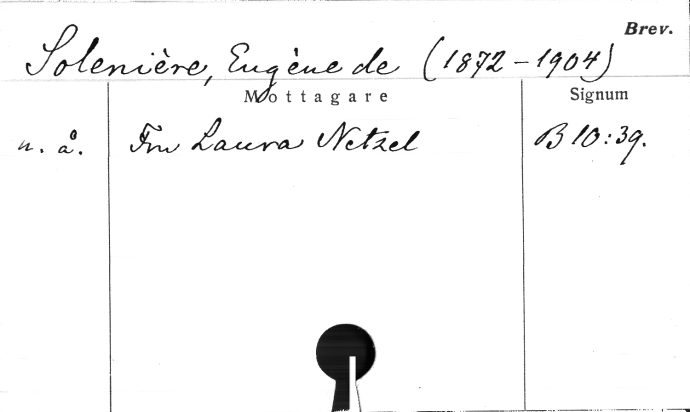 Brev.
Solenière, Eugène de (1872-1904)
Mottagare Signum
u. å. Fru Laura Netzel B 10:39.